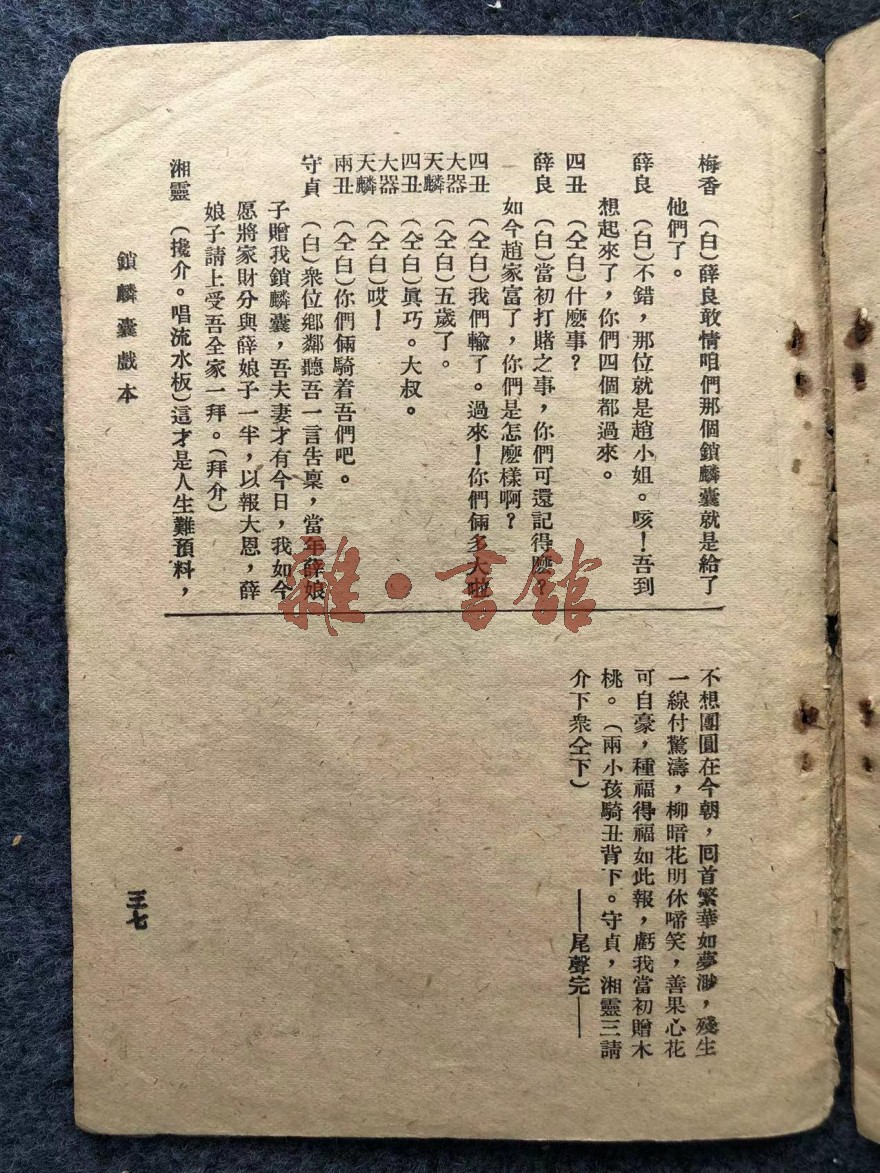 梅香　(白)薛良敢情咱們那個鎖麟囊就是給了
他們了。
薛良　(白)不錯，那位就是趙小姐。咳！吾到
想起來了，你們四個都過來。
四丑　(仝白)什麽事？
薛良　(白)當初打賭之事，你們可還記得麽？
如今趙家富了，你們是怎麽樣啊？
四丑　(仝白)我們輸了。過來！你們倆多大啦
大器天麟　(仝白)五歲了。
四丑　(仝白)眞巧。大叔。
大器天麟　(仝白)哎！
兩丑　(仝白)你們倆騎着吾們吧。
守貞　(白)衆位鄉鄰聽吾一言告稟，當年薛娘
子贈我鎖麟囊，吾夫妻才有今日，我如今
愿將家財分與薛娘子一半，以報大恩，薛
娘子請上受吾全家一拜。(拜介)
湘靈　(攙介。唱流水板)這才是人生難預料，
不想團圓在今朝，回首繁華如夢渺，殘生
一線付驚濤，柳暗花明休啼笑，善果心花
可自豪，種福得福如此報，虧我當初贈木
桃。(兩小孩騎丑背下。守貞，湘靈三請
介下衆仝下)
——尾聲完——
鎖麟囊戲本
三七
雜·書館